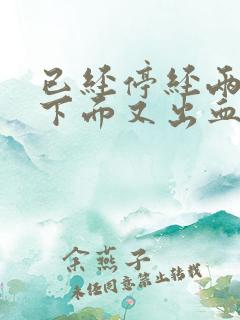 已經停經兩
下而又出血
余燕子
未经同意禁止转载